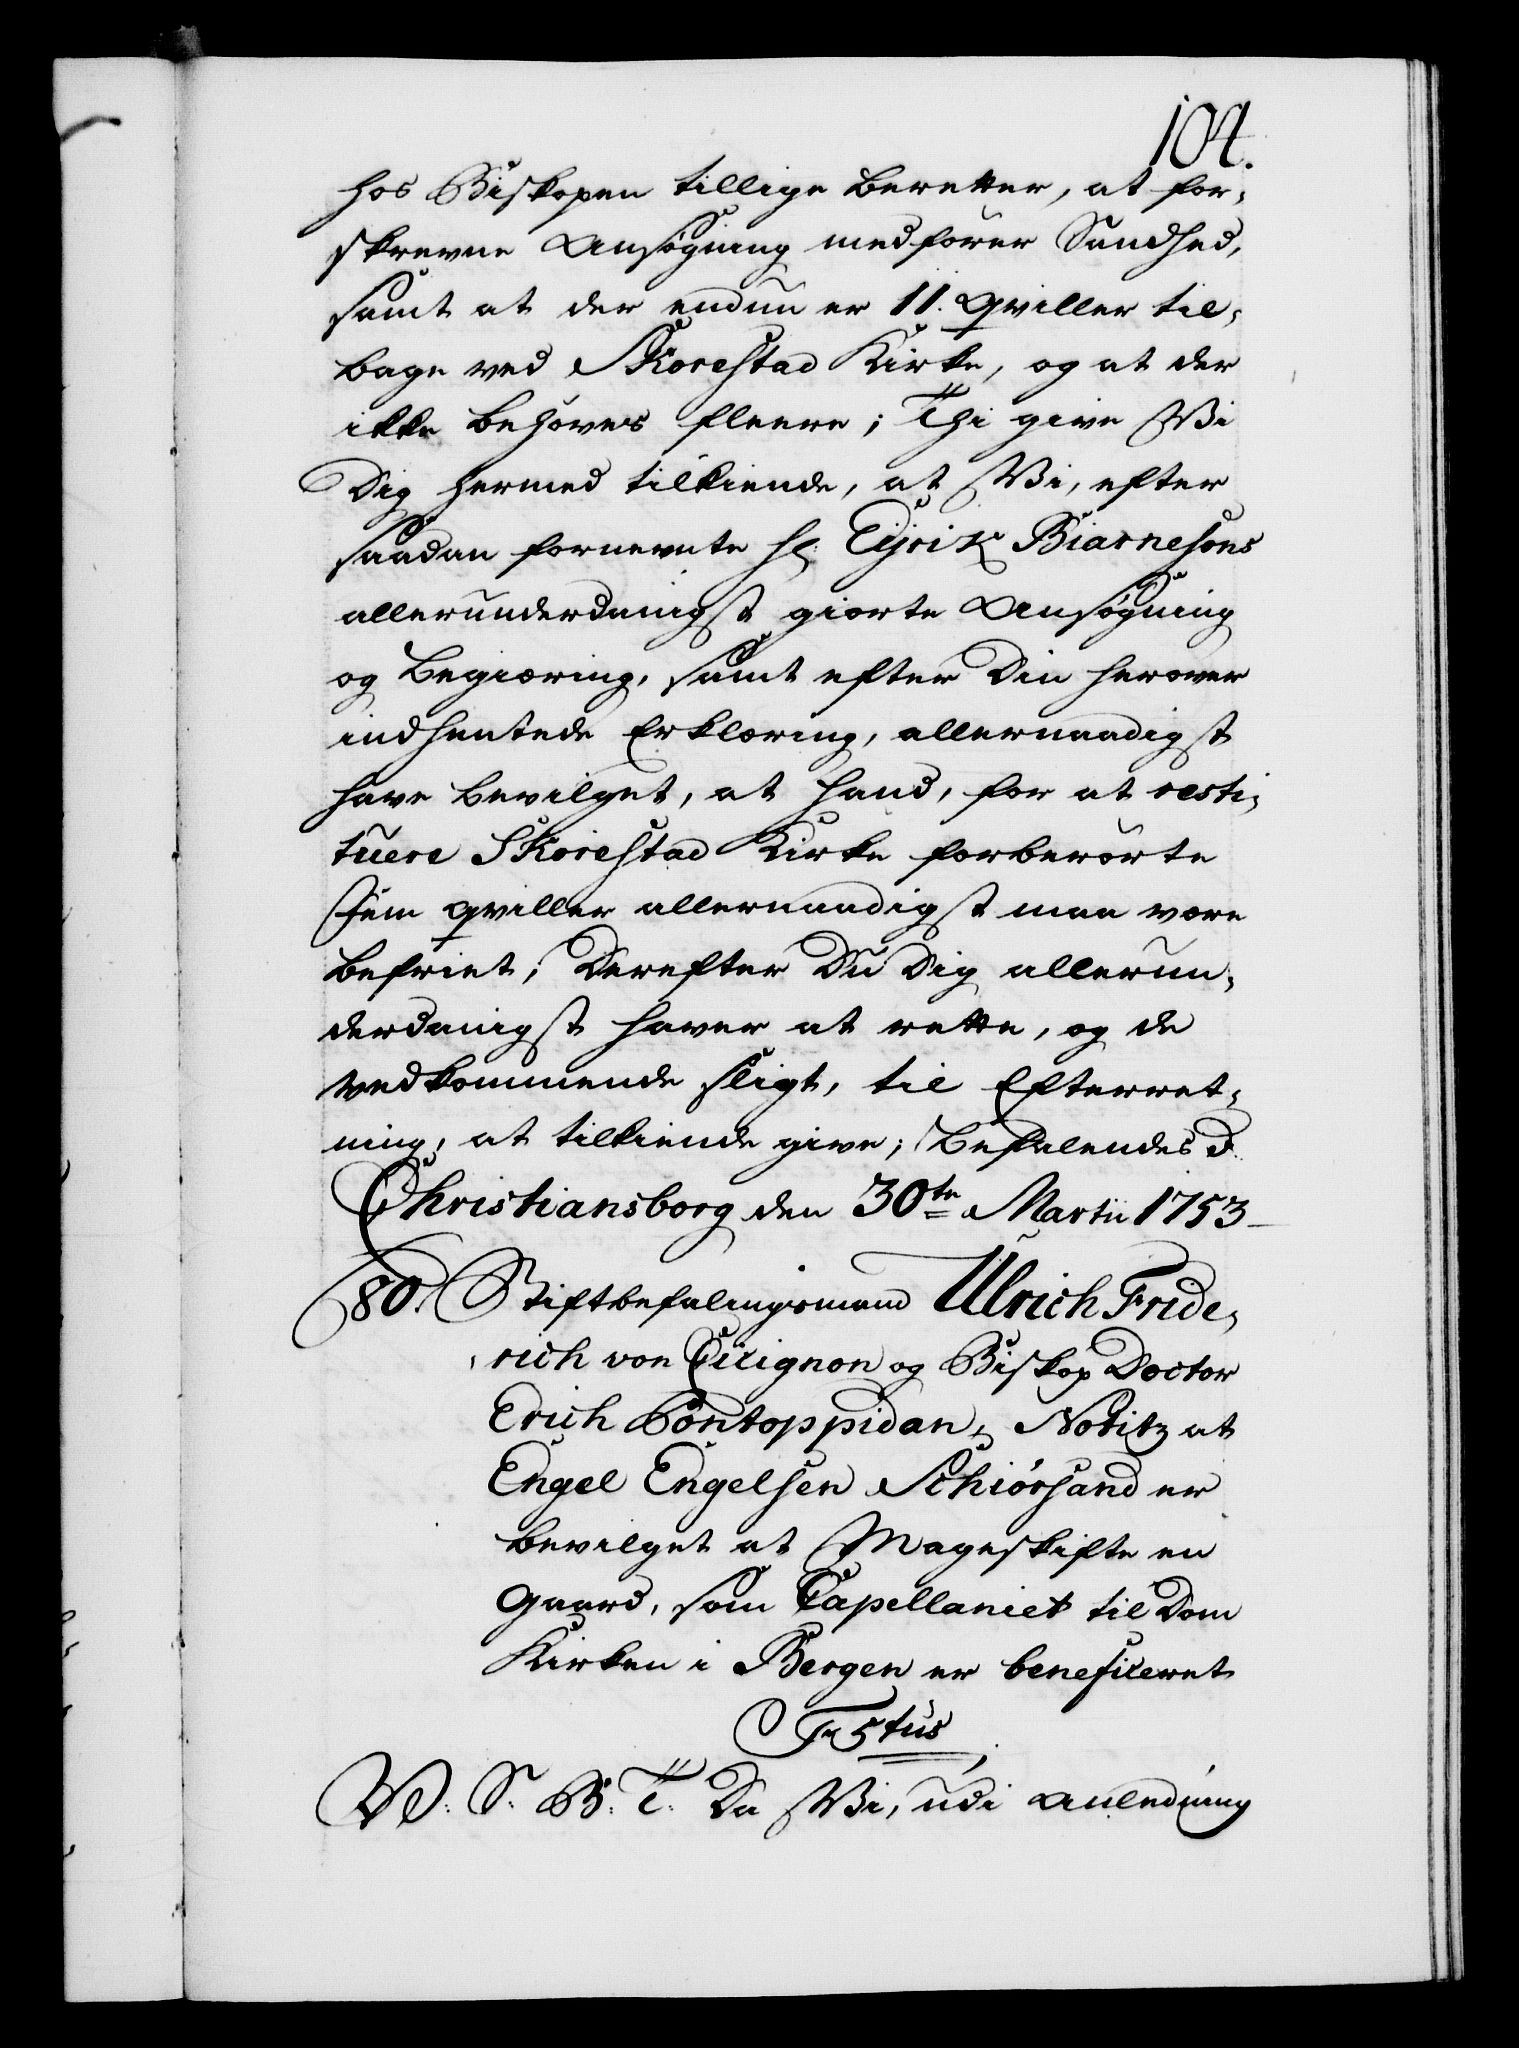 104.
hos Biskopen tillige beretter, at for-
skrevne Ansøgning medfører Sandhed,
samt at der endnu er 11. qviller til-
bage ved Skorestad Kirke, og at der
ikke behøves fleere; Thi give Vi
Dig hermed tilkiende, at Vi, efter
saadan fornevnte Hr: Eyrik Biarnesøns
allerunderdanigst giorte Ansøgning
og Begiæring, samt efter Din herover
indhentede Erklæring, allernaadigst
have bevilget, at hand, for at resti-
tuere Skorestad Kirke forberørte
Fem qviller allernaadigst maa være
befriet; Derefter Du Dig allerun-
derdanigst haver at rette, og de
vedkommende sligt, til Efterret-
ning, at tilkiende give; Befalendes D:
Christiansborg den 30te Martii 1753
80. Stiftbefalingsmand Ulrich Fride-
rich von Cicignon og Biskop Doctor
Erich Pontoppidan, Notitz at
Engel Engelsen Schiørsand er
bevilget at Mageskifte en
Gaard, som Capellaniet til Dom
Kirken i Bergen er beneficeret
F 5tus
V: S. G: T: Da Vi, udi Anledning